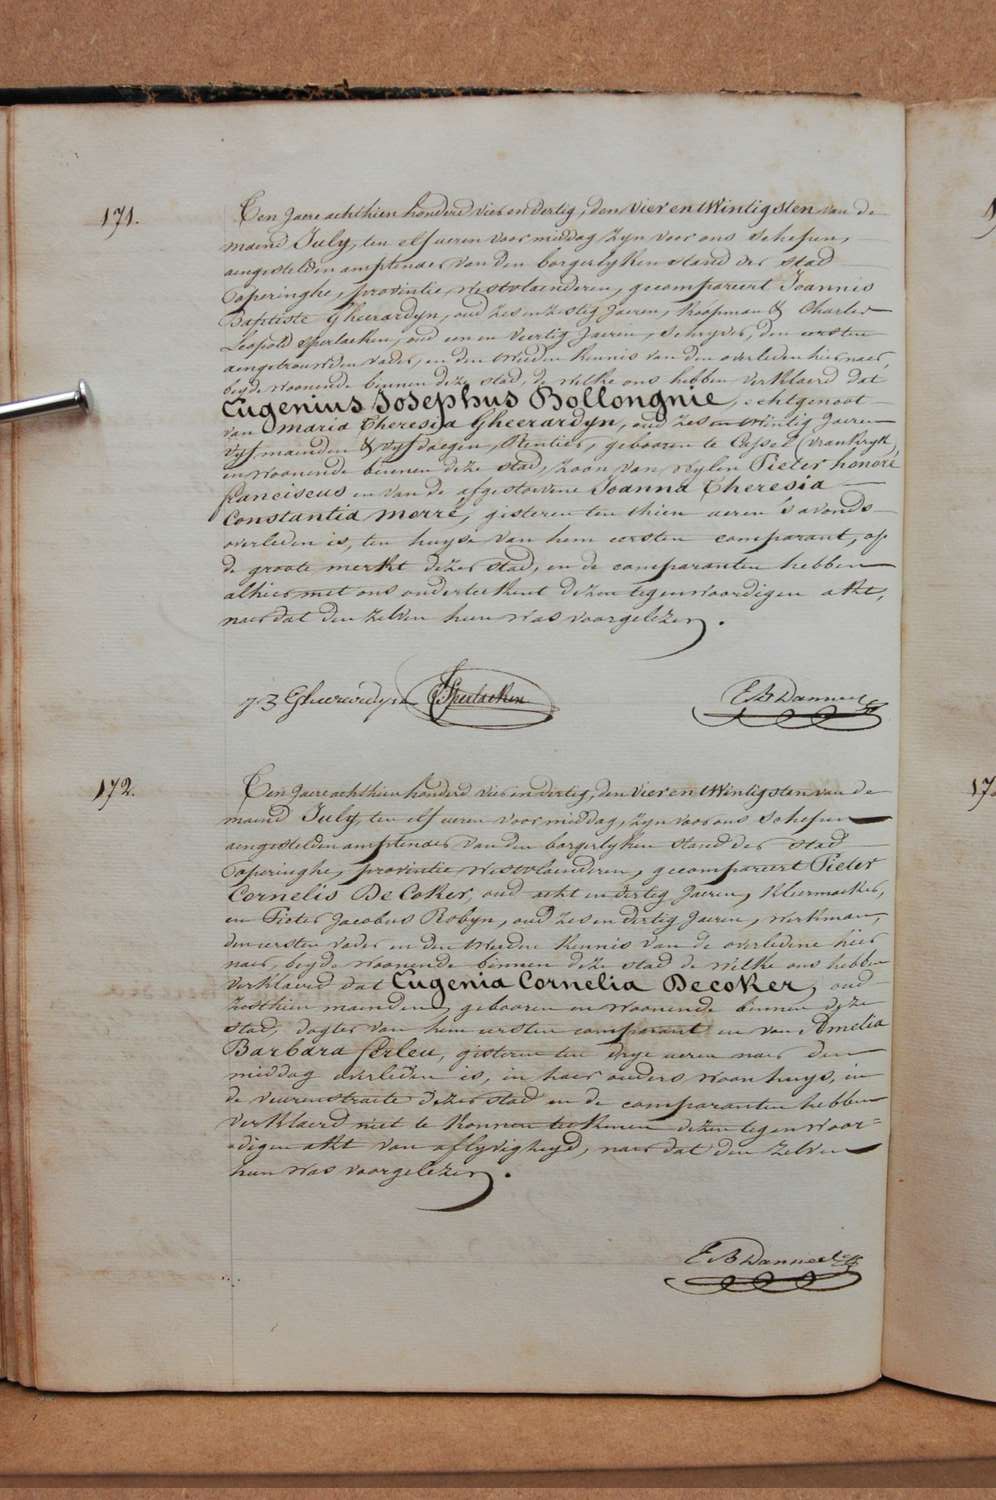 171.
Ten Jaere achthien honderd vier en dertig, den vier en twintigsten van de
maend July, ten elf ueren voor middag, zyn voor ons schepen,
aengestelden amptenaer van den borgerlyken stand der stad
Poperinghe, provintie Westvlaenderen, gecompareert Joannis
Baptiste Gheerardyn, oud zes en zestig Jaeren, Koopman & Charles
Leopold Sperlacken, oud een en veertig Jaeren, schryver, den eersten
aengetrouwden vader, en den tweeden kennis van den overleden hier naer,
beyde woonende binnen deze stad, de welke ons hebben verklaerd dat
Eugenius Josephus Bollongnie, echtgenoot
van Maria Theresia Gheerardyn, oud zes en twintig Jaeren
vyf maenden & vyf daegen, Rentier, gebooren te Cassel (vrankryk)
en woonende binnen deze stad, zoon van wylen Pieter honoré
franciscus en van de afgestorvene Joanna Theresia
Constantia Morré, gisteren ten thien ueren 's avonds
overleden is, ten huyse van hem eersten comparant, op
de groote merkt dezer stad, en de comparanten hebben
alhier met ons onderteekent dezen tegenwoordigen akt,
naer dat den zelven hun was voorgelezen.
J B Gheerardyn Sperlacken E B Danneel
172.
Ten Jaere achthien honderd vier en dertig, den vier en twintigsten van de
maend July, ten elf ueren voor middag, zyn voor ons schepen
aengestelden amptenaer van den borgerlyken stand der stad
Poperinghe, provintie Westvlaenderen, gecompareert Pieter
Cornelis De Coker, oud acht en dertig Jaeren, kleermaeker,
en Pieter Jacobus Robyn, oud zes en dertig Jaeren, werkman,
den eersten vader en den tweeden kennis van de overledene hier
naer, beyde woonende binnen deze stad de welke ons hebben
verklaerd dat Eugenia Cornelia Decoker, oud
zesthien maenden, gebooren en woonende binnen deze
stad, dogter van hem eersten comparant en van Amelia
Barbara ferleu, gisteren ten drye ueren naer den
middag overleden is, in haer ouders woonhuys, in
de veurenstraete dezer stad en de comparanten hebben
verklaerd niet te konnen teekenen dezen tegenwoor=
=digen akt van aflyvigheyd, naer dat den zelven
hun was voorgelezen.
E B Danneel